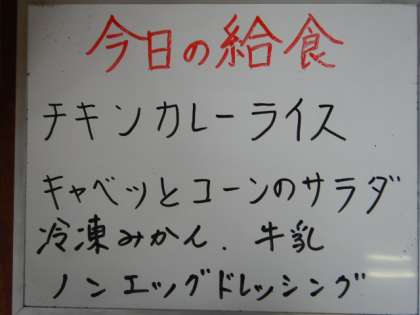 今日の給食
チキンカレーライス
キャベツとコーンのサラダ
冷凍みかん. 牛乳
ノンエッグドレッシング